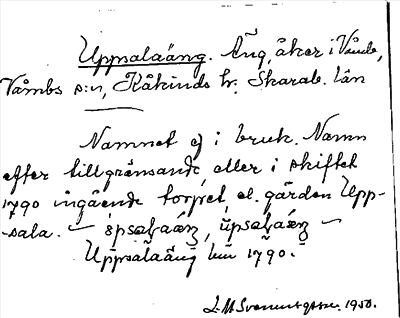 Uppsalaäng. Äng, åker i Våmb,
Våmbs s:n, Kåkinds hr. Skarab. län
Namnet ej i bruk. Namn
efter tillgränsande, eller i skiftet
1790 ingående torpet el. gården Upp-
sala. –
Uppsalaäng 1790.
1950.